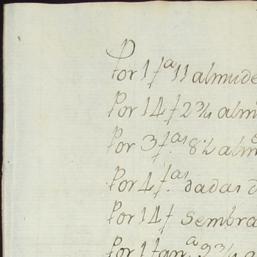 Por 1 f.ª 11 almude
Por 14 f 2¾ alm
Por 3 f.ªs 8½ alm
Por 4 f.ªs dadas d
Por 14 f sembra
Por 1 fan.ª 2¾ a